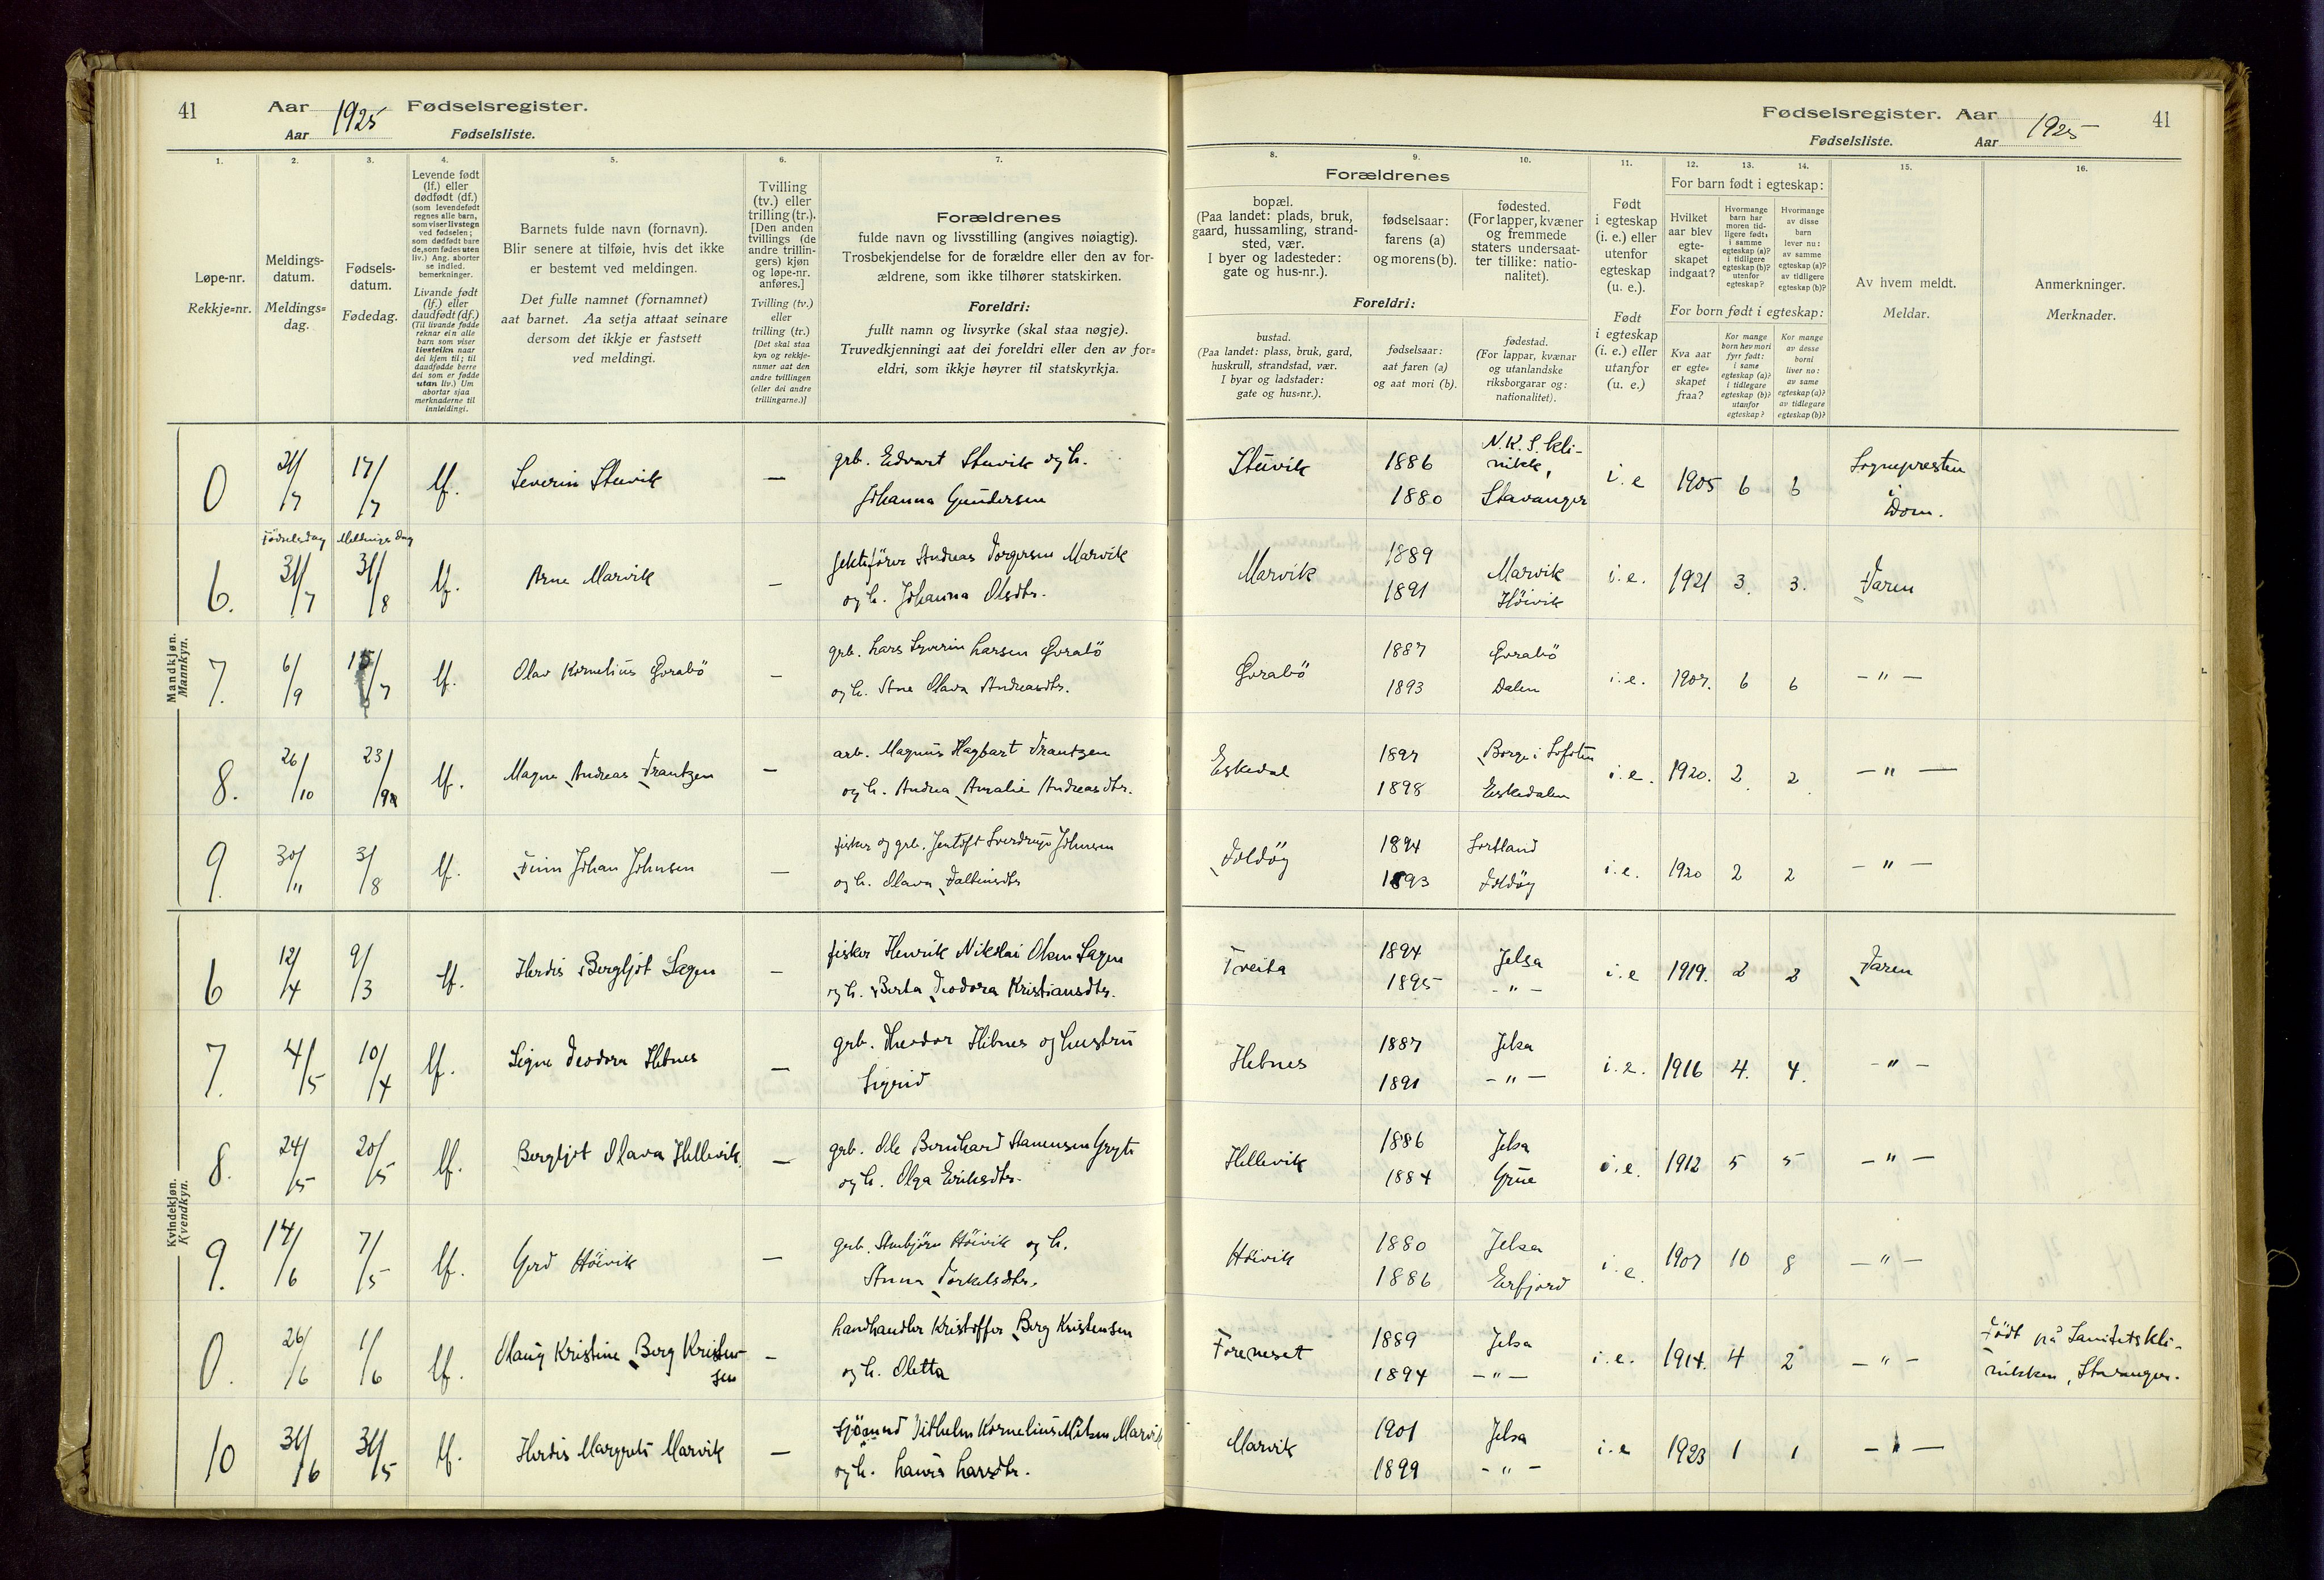 41 Aar 1925 Fødselsregister.
Aar Fødselsliste.
1. 2. 3. 4. 5. 6. 7.
Løpe-nr.
Rekkje-nr.
Meldings-
datum.
Meldings-
dag.
Fødsels-
datum.
Fødedag.
Levende født
(lf.) eller
dødfødt (df.)
(som levendefødt
regnes alle barn,
som viser livstegn
ved fødselen;
som dødfødt bare
de, som fødes uten
liv.) Ang. aborter
se indled.
bemerkninger.
Livande født
(lf.) eller
daudfødt (df.)
(Til livande fødde
reknar ein alle
barn som viser
livsteikn naar
dei kjem til; til
daudfødde berre
dei som er fødde
utan liv.) Um
abortar sjaa
merknaderne til
innleidingi.
Barnets fulde navn (fornavn).
Blir senere at tilføie, hvis det ikke
er bestemt ved meldingen.
Det fulle namnet (fornamnet)
aat barnet. Aa setja attaat seinare
dersom det ikkje er fastsett
ved meldingi.
Tvilling
(tv.) eller
trilling (tr.).
[Den anden
tvillings (de
andre trillin-
gers) kjøn
og løpe-nr.
anføres.]
Tvilling (tv.)
eller
trilling (tr.)
[Det skal staa
kyn og rekkje-
numer aat den
andre tvillingen
(eller dei andre
trillingarne.)]
Forældrenes
fulde navn og livsstilling (angives nøiagtig).
Trosbekjendelse for de forældre eller den av for-
ældrene, som ikke tilhører statskirken.
Foreldri:
fullt namn og livsyrke (skal staa nøgje).
Truvedkjenningi aat dei foreldri eller den av for-
eldri, som ikkje høyrer til statskyrkja.
Fødselsregister. Aar 1925 41
Fødselsliste. Aar
8. 9. 10. 11. 12. 13. 14. 15. 16.
Forældrenes
bopæl.
(Paa landet: plads, bruk,
gaard, hussamling, strand-
sted, vær.
I byer og ladesteder:
gate og hus-nr.).
fødselsaar:
farens (a)
og morens (b).
fødested.
(For lapper, kvæner
og fremmede
staters undersaat-
ter tillike: natio-
nalitet).
Foreldri:
bustad.
(Paa landet: plass, bruk, gard,
huskrull, strandstad, vær.
I byar og ladstader:
gate og hus-nr.).
fødselsaar:
aat faren (a)
og aat mori (b).
fødestad.
(For lappar, kvænar
og utanlandske
riksborgarar og:
nationalitet).
Født
i egteskap
(i. e.) eller
utenfor
egteskap
(u. e.).
Født
i egteskap
(i. e.) eller
utanfor
(u. e.)
For barn født i egteskap:
Hvilket
aar blev
egte-
skapet
indgaat?
Hvormange
barn har
moren tid-
ligere født:
i samme
egteskap (a)?
i tidligere
egteskap (b)?
utenfor
egteskap?
Hvormange
av disse
barn
lever nu:
av samme
egteskap (a)?
av tidligere
egteskap (b)?
For born født i egteskap:
Kva aar
er egte-
skapet
fraa?
Kor mange
born hev mori
fyrr født:
i same
egteskap (a)?
i tidlegare
egteskap (b)?
utanfor
egteskap?
Kor mange
av desse
borni
liver no:
av same
egteskap (a)?
av tidlegare
egteskap (b)?
Av hvem meldt.
Meldar.
Anmerkninger.
Merknader.
Mandkjøn.
Mannkyn.
0 21/7 17/7 lf. Severin Stuvik — grb. Edvart Stuvik og h. Johanna Gundersen Stuvik 1886 1880 N.K.S. kli-nikk, Stavanger i.e 1905 6 6 Sognepresten i Dom.
Fødselsdag Meldingsdag
6. 31/7 31/8 lf. Arne Marvik — jektefører Andreas Torgersen Marvik og h. Johanna Olsdtr. Marvik 1889 1891 Marvik Höivik i.e. 1921 3. 3. Faren
7. 6/9 15/7 lf. Olav Kornelius Gorabö — grb. Lars Severin Larsen Gorabö og h. Ane Olava Andreasdtr. Gorabö 1887 1893 Gorabö Dalen i.e. 1907. 6 6 — " —
8. 26/10 23/9 lf. Magne Andreas Frantzen — arb. Magnus Hagbart Frantzen og h. Andrea Amalie Andreasdtr. Eskedal 1897 1898 Borge i Lofoten Eskedalen i.e. 1920. 2 2 — " —
9. 30/11 3/8 lf. Finn Johan Johnsen — fisker og grb. Jentoft Sverdrup Johnsen og h. Olava Faltinsdtr Foldöy 1894 1893 Sortland Foldöy i.e. 1920 2 2 — " —
Kvindekjøn.
Kvendkyn.
6 12/4 9/3 lf. Herdis Bergljot Sagen — fisker Henrik Nikolai Olsen Sagen og h. Berta Teodora Kristiansdtr. Treita 1894 1895 Jelsa — " — i.e 1919. 2 2 Faren
7. 4/5 10/4 lf. Signe Teodora Hebnes — grb. Theodor Hebnes og hustru Sigrid Hebnes 1887 1891 Jelsa — " — i.e. 1916 4. 4. — " —
8. 24/5 20/5 lf. Bergljot Olava Hellevik — grb. Ole Bernhard og h. Olga Eriksdtr. Hellevik 1886 1884 Jelsa Grue i.e. 1912 5 5 — " —
9. 14/6 7/5 lf. Gerd Höivik — grb. Stenbjörn Höivik og h. Anna Torkelsdtr. Höivik 1880 1886 Jelsa Erfjord i.e. 1907 10 8 — " —
0. 26/6 1/6 lf. Olaug Kristine Berg Kristen-sen — landhandler Kristoffer Berg Kristensen og h. Oletta Foreneset 1889 1894 Jelsa — " — i.e. 1914. 4 2 — " — Född på Sanitetskli-nikken, Stavanger.
10 31/6 31/5 lf. Herdis Margrete Marvik — sjömand Vilhelm Kornelius Marvik og h. Larsdtr. Marvik 1901 1899 Jelsa — " — i.e 1923 1 1 — " —